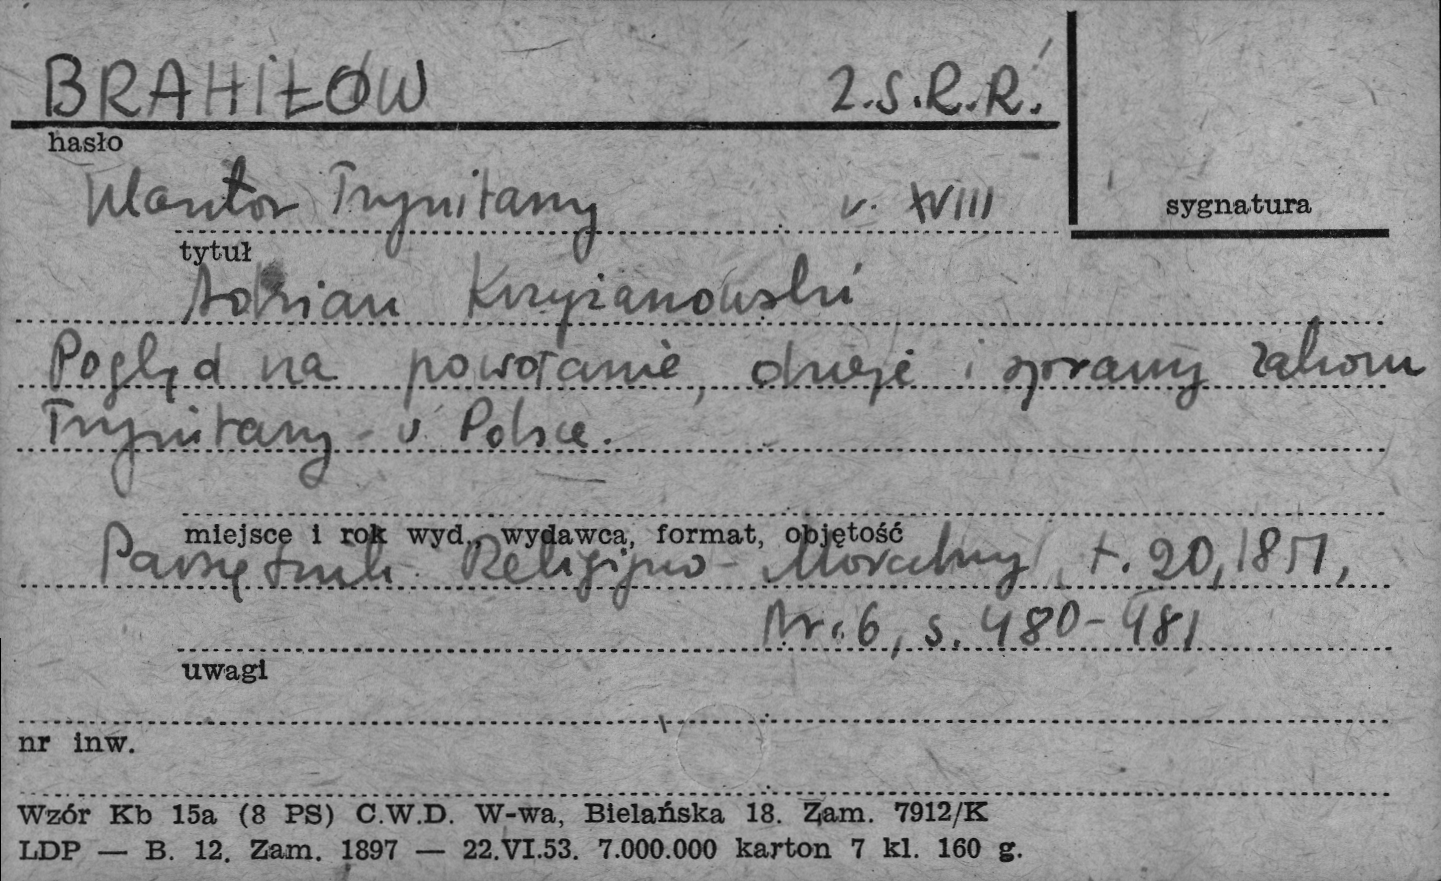 BRAHIŁÓW Z.S.R.R.
hasło
Klasztor Trynitarzy w. XVIII
sygnatura
tytuł
Adrian Krzyżanowski
Pogląd na powołanie, dzieje i sprawy zakonu
Trynitarzy w Polsce.
miejsce i rok wyd., wydawca, format, objętość
Pamiętnik Religijno-Moralny, t. 20, 1851,
Nr. 6, s. 480-481
uwagi
nr inw.
Wzór Kb 15a (8 PS) C.W.D. W-wa, Bielańska 18. Zam. 7912/K
LDP — B. 12. Zam. 1897 — 22.VI.53. 7.000.000 karton 7 kl. 160 g.